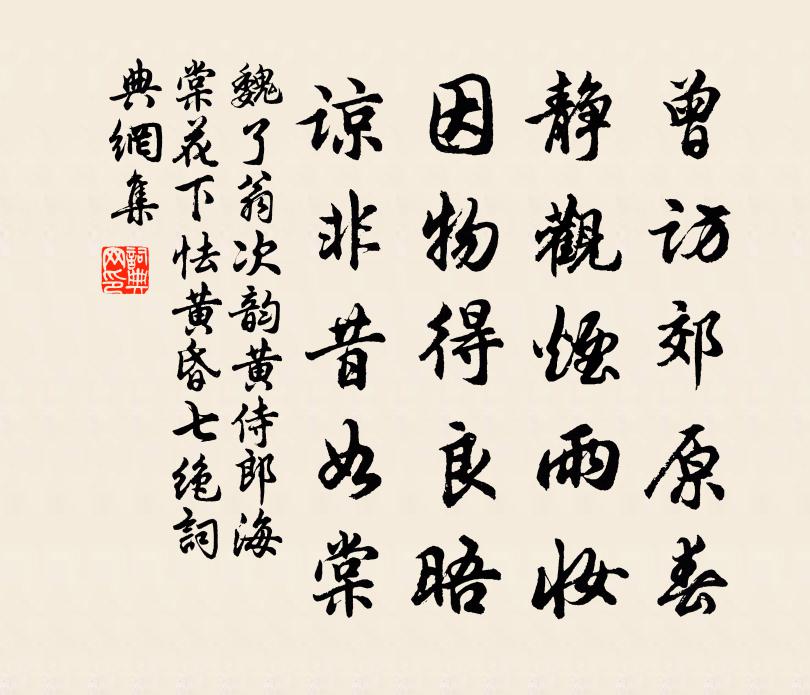 曾访郊原春
静觀煙雨妆
因物得良晤
谅非昔如棠
魏了翁次韵黄侍郎海
棠花下怯黄昏七绝詞
典網集
詞典
网印